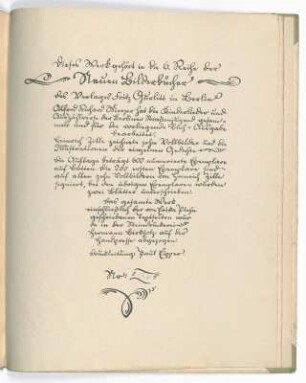 Dieses Werk gehört in die 6. Reihe der
Neuen Bilderbücher
des Verlages Fritz Gurlitt in Berlin
Alfred Richard Meyer hat die Kinderlieder und
Auszählverse der Berliner Straßenjugend gesam-
melt und für die vorliegende Buch-Ausgabe
bearbeitet.
Heinrich Zille zeichnete zehn Vollbilder und die
Illustrationen
Die Auflage beträgt 600 numerierte Exemplare
auf Bütten die 200 ersten Exemplare sind
auf allen zehn Vollbildern von Heinrich Zille
signiert, bei den übrigen Exemplaren wurden
zwei Blätter unterschrieben
Das gesamte Werk
einschließlich der von
geschriebenen Textseiten wur-
de in der Steindruckerei
Hermann Birkholz auf der
Handpresse abgezogen
Druckleitung Paul Eipper
Nr.